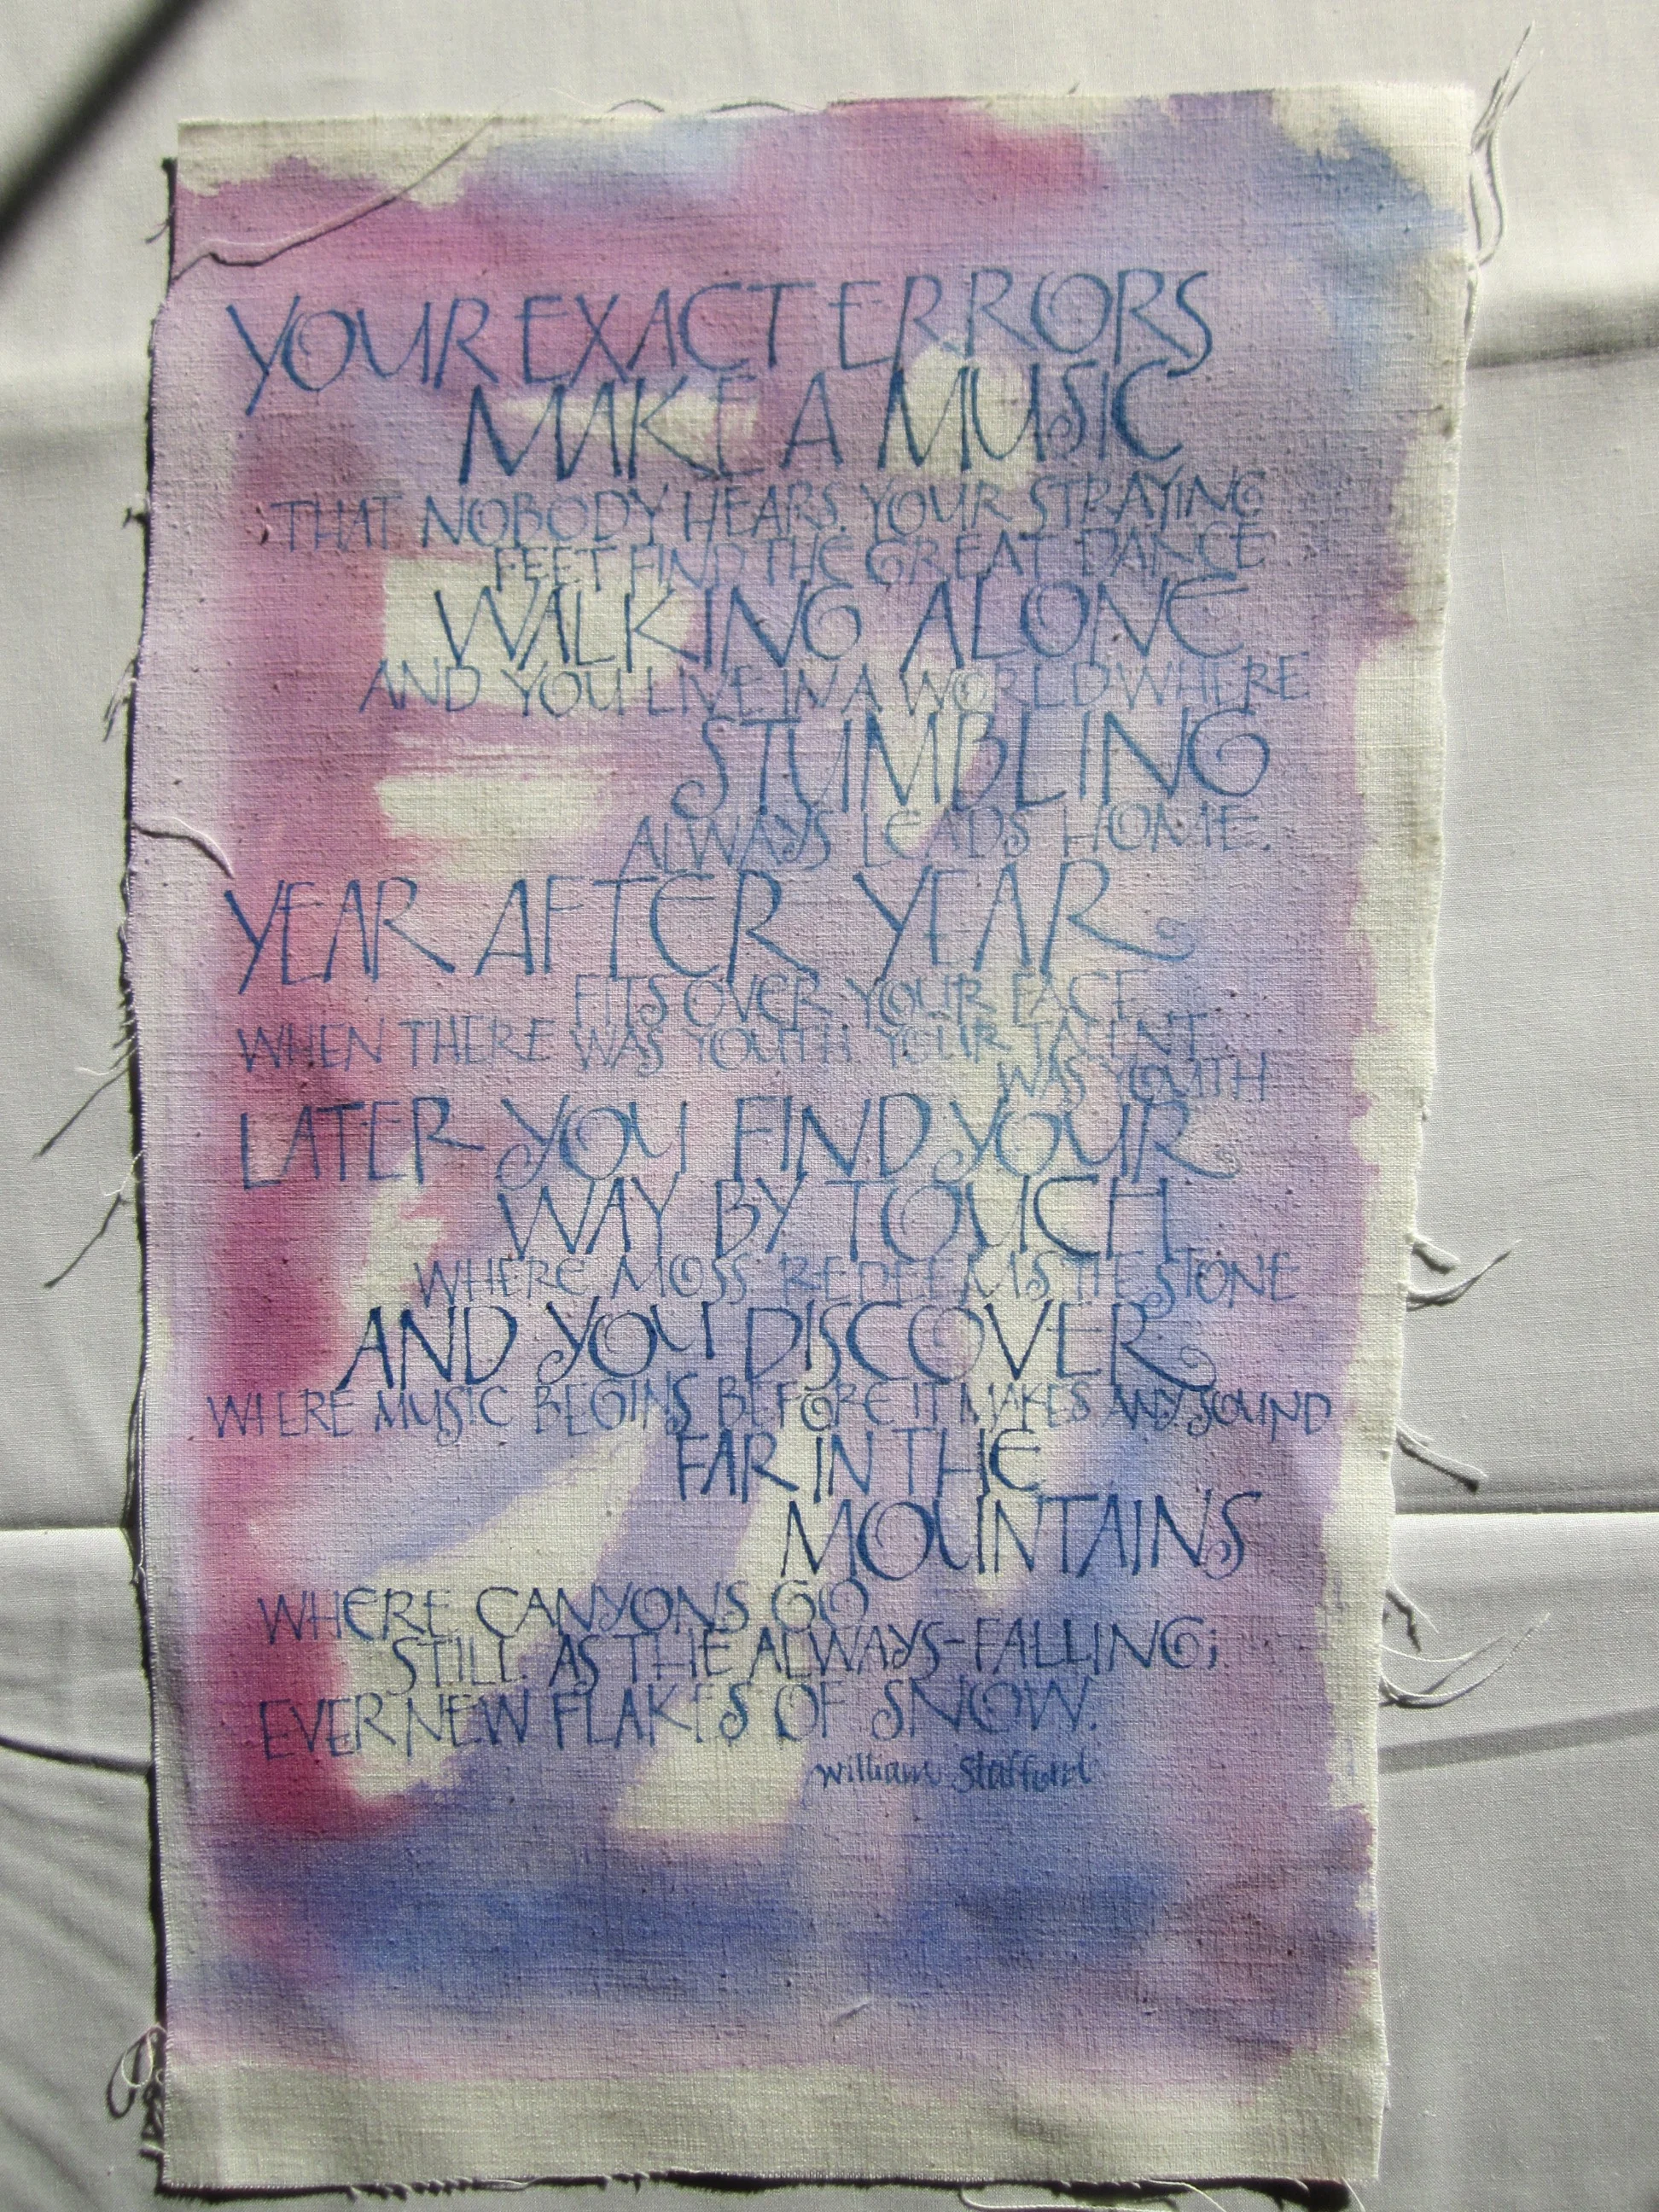 YOUR EXACT ERRORS
MAKE A MUSIC
THAT NOBODY HEARS. YOUR STRAYING
FEET FIND THE GREAT DANCE
WALKING ALONE
AND YOU LIVE IN A WORLD WHERE
STUMBLING
ALWAYS LEADS HOME.
YEAR AFTER YEAR
FITS OVER YOUR FACE
WHEN THERE WAS YOUTH YOUR TALENT
WAS YOUTH
LATER YOU FIND YOUR
WAY BY TOUCH
WHERE MOSS REDEEMS THE STONE
AND YOU DISCOVER
WHERE MUSIC BEGINS BEFORE IT MAKES ANY SOUND
FAR IN THE
MOUNTAINS
WHERE CANYONS GO
STILL AS THE ALWAYS-FALLING;
EVER NEW FLAKES OF SNOW.
William Stafford